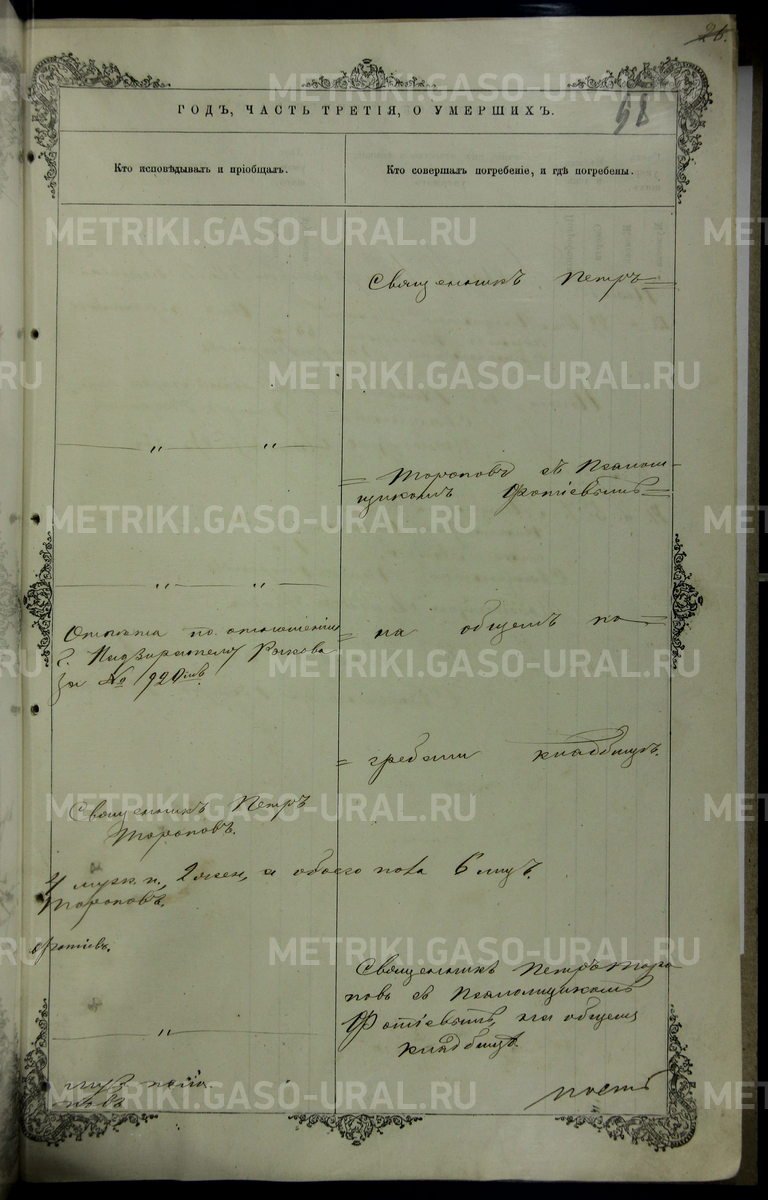 26.
58
ГОДЪ, ЧАСТЬ ТРЕТІЯ, О УМЕРШИХЪ.
Кто исповѣдывалъ и пріобщалъ.
Кто совершалъ погребеніе, и гдѣ погребены.
Священникъ Петръ =
— „ — „ —
= Тороповъ съ Псалом-
щикомъ Фотіевымъ =
— „ — „ —
по отношенію
Г. Надзирателя Рыкова
за № 920мъ
= на общемъ по =
= гребены кладбищѣ.
Священникъ Петръ
Тороповъ.
4 муж. п., 2 жен, а обоего пола 6 лицъ.
Тороповъ.
Фотіевъ.
— „ —
Священникъ Петръ Торо
повъ съ Псаломщикомъ
Фотіевымъ, на общемъ
кладбищѣ.
METRIKI.GASO-URAL.RU